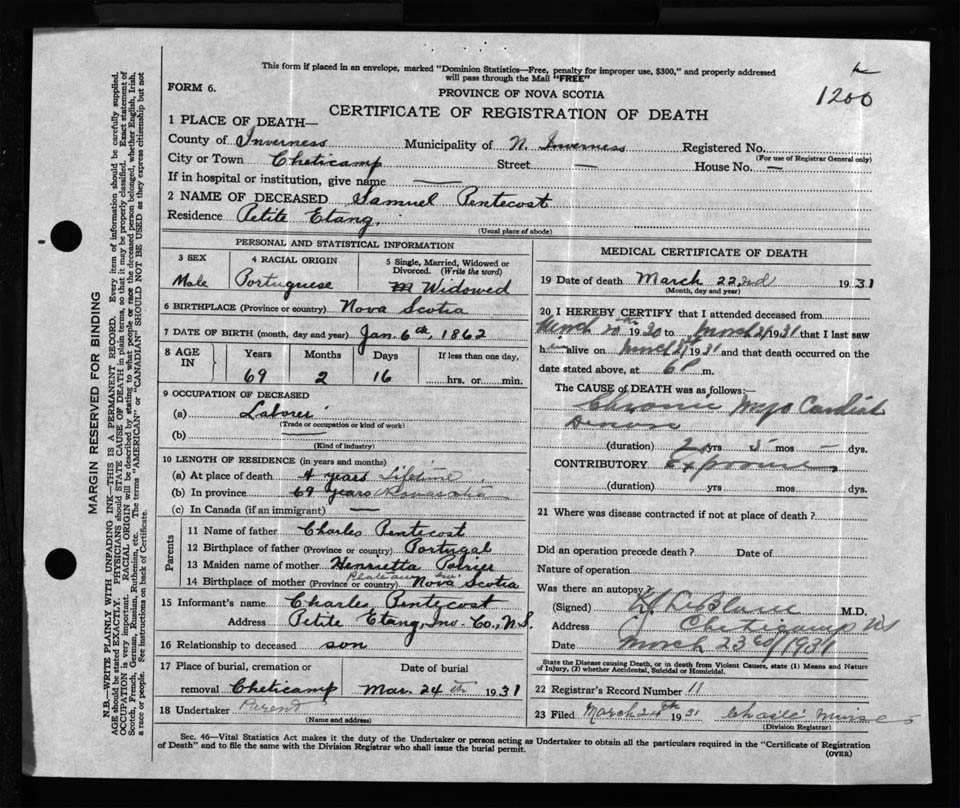 This form if placed in an envelope, marked "Dominion Statistics—Free, penalty for improper use, $300," and properly addressed
will pass through the Mail "FREE"
1200
FORM 6.
PROVINCE OF NOVA SCOTIA
CERTIFICATE OF REGISTRATION OF DEATH
1 PLACE OF DEATH—
County of Inverness Municipality of N. Inverness Registered No.
(For use of Registrar General only)
City or Town Cheticamp Street — House No. —
If in hospital or institution, give name —
2 NAME OF DECEASED Samuel Pentecost
Residence Petite Etang.
(Usual place of abode)
PERSONAL AND STATISTICAL INFORMATION
3 SEX 4 RACIAL ORIGIN 5 Single, Married, Widowed or
Divorced. (Write the word)
Male Portuguese Widowed
6 BIRTHPLACE (Province or country) Nova Scotia
7 DATE OF BIRTH (month, day and year) Jan. 6th, 1862
8 AGE IN Years Months Days If less than one day,
69 2 16 hrs. or min.
9 OCCUPATION OF DECEASED
(a) Laborer
(Trade or occupation or kind of work)
(b) —
(Kind of industry)
10 LENGTH OF RESIDENCE (in years and months)
(a) At place of death 4 years lifetime
(b) In province 69 years
(c) In Canada (if an immigrant) —
Parents
11 Name of father Charles Pentecost
12 Birthplace of father (Province or country) Portugal
13 Maiden name of mother Henrietta
14 Birthplace of mother (Province or country) Plateau Nova Scotia
15 Informant's name Charles Pentecost
Address Petite Etang, Inv. Co., N.S.
16 Relationship to deceased son
17 Place of burial, cremation or Date of burial
removal Cheticamp Mar. 24th 1931
18 Undertaker
(Name and address)
MEDICAL CERTIFICATE OF DEATH
19 Date of death March 22nd 1931
(Month, day and year)
20 I HEREBY CERTIFY that I attended deceased from
March 20th 1930 to March 21 1931 that I last saw
him alive on March 21 1931 and that death occurred on the
date stated above, at 6 P m.
The CAUSE of DEATH was as follows:—
Chronic Myo Cardial
(duration) 2 yrs 5 mos — dys.
CONTRIBUTORY Exposure
(duration) yrs mos dys.
21 Where was disease contracted if not at place of death?
Did an operation precede death? Date of
Nature of operation
Was there an autopsy?
(Signed) LeBlanc M.D.
Address Cheticamp NS
Date March 23rd/1931
State the Disease causing Death, or in death from Violent Causes, state (1) Means and Nature
of Injury, (2) whether Accidental, Suicidal or Homicidal.
22 Registrar's Record Number 11
23 Filed March 24th 1931
(Division Registrar)
Sec. 46—Vital Statistics Act makes it the duty of the Undertaker or person acting as Undertaker to obtain all the particulars required in the "Certificate of Registration
of Death" and to file the same with the Division Registrar who shall issue the burial permit.
(OVER)
MARGIN RESERVED FOR BINDING
N.B.—WRITE PLAINLY WITH UNFADING INK—THIS IS A PERMANENT RECORD. Every item of information should be carefully supplied.
AGE should be stated EXACTLY. PHYSICIANS should STATE CAUSE OF DEATH in plain terms, so that it may be properly classified. Exact statement of
OCCUPATION is very important. RACIAL ORIGIN will be described by stating to what people or race the deceased person belonged, whether English, Irish,
Scotch, French, German, Russian, Ruthenian, etc. The terms "AMERICAN" or "CANADIAN" SHOULD NOT BE USED as they express citizenship but not
a race or people. See instructions on back of Certificate.